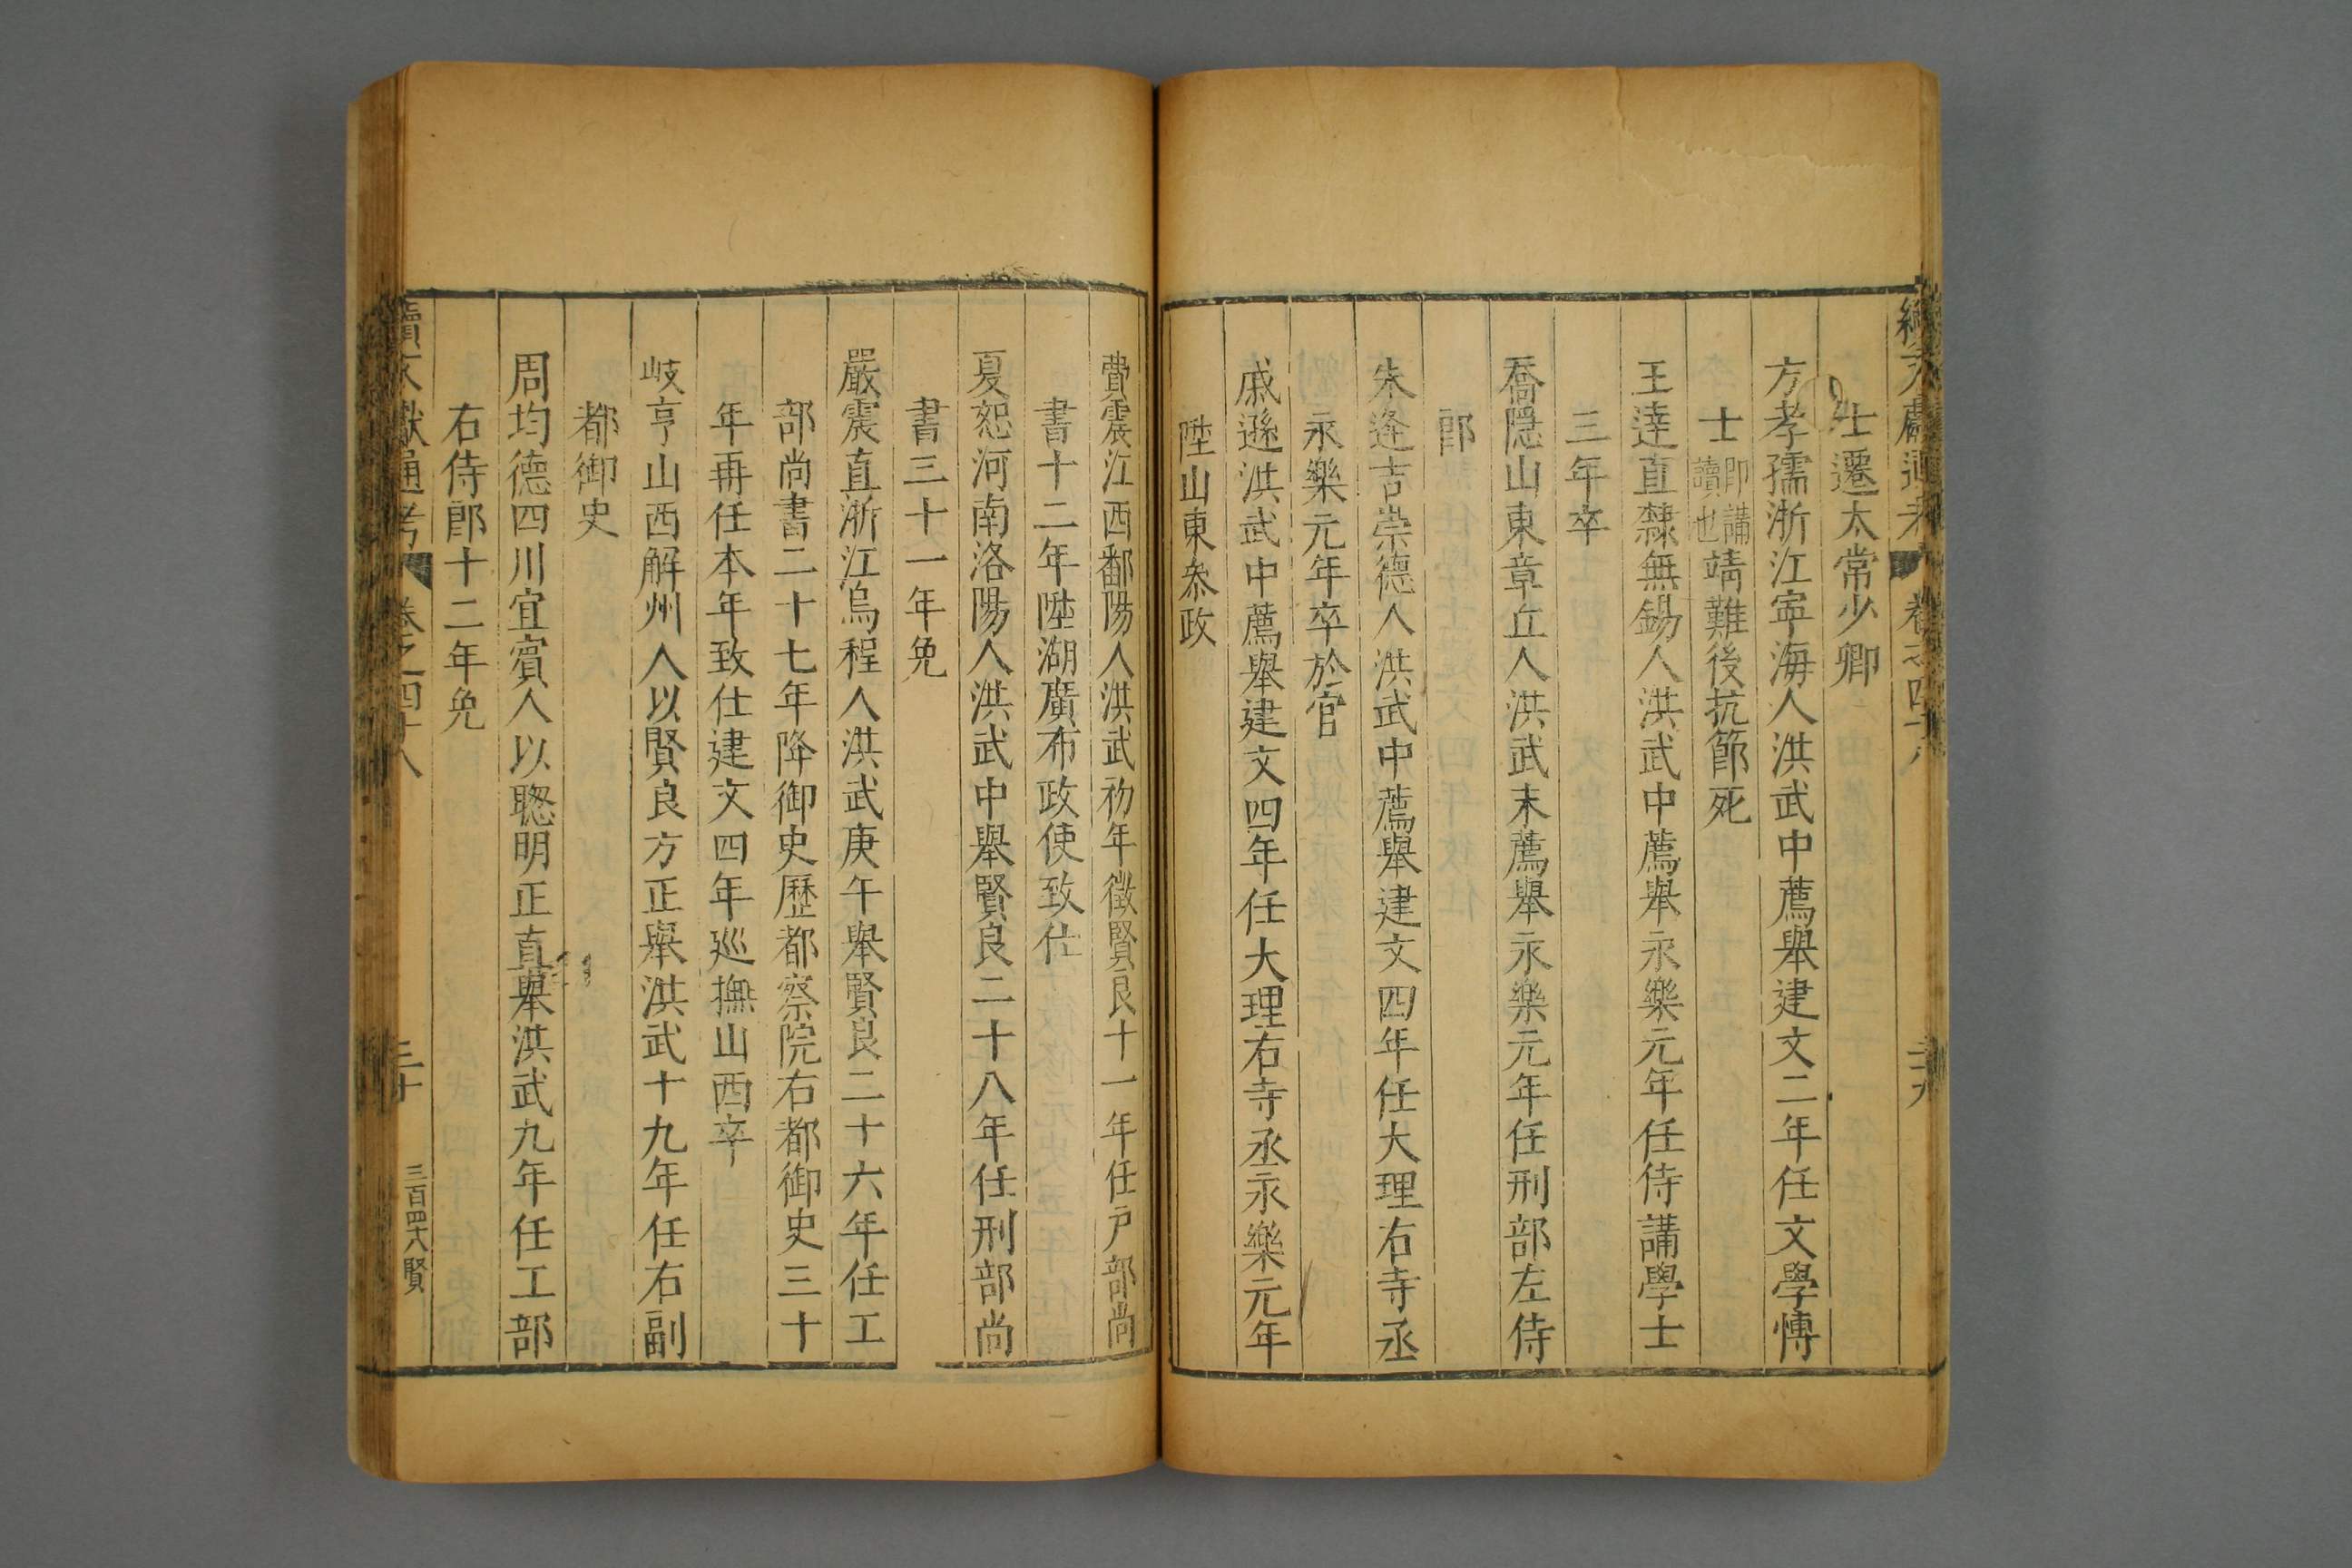 續文獻通考 卷之四十八 二十九
士遷太常少卿
方孝孺浙江寧海人洪武中薦舉建文二年任文學博
士即講讀也靖難後抗節死
王達直隸無錫人洪武中薦舉永樂元年任侍講學士
三年卒
喬隱山東章丘人洪武末薦舉永樂元年任刑部左侍
郎
朱逢吉崇德人洪武中薦舉建文四年任大理右寺丞
永樂元年卒於官
戚遜洪武中薦舉建文四年任大理右寺丞永樂元年
陞山東叅政
費震江西鄱陽人洪武初年徵賢良十一年任戶部尚
書十二年陞湖廣布政使致仕
夏恕河南洛陽人洪武中舉賢良二十八年任刑部尚
書三十一年免
嚴震直浙江烏程人洪武庚午舉賢良二十六年任工
部尚書二十七年降御史歷都察院右都御史三十
年再任本年致仕建文四年廵撫山西卒
岐亨山西解州人以賢良方正舉洪武十九年任右副
都御史
周均德四川宜賓人以聰明正直舉洪武九年任工部
右侍郎十二年免
續文獻通考 卷之四十八 三十 三百四十六賢